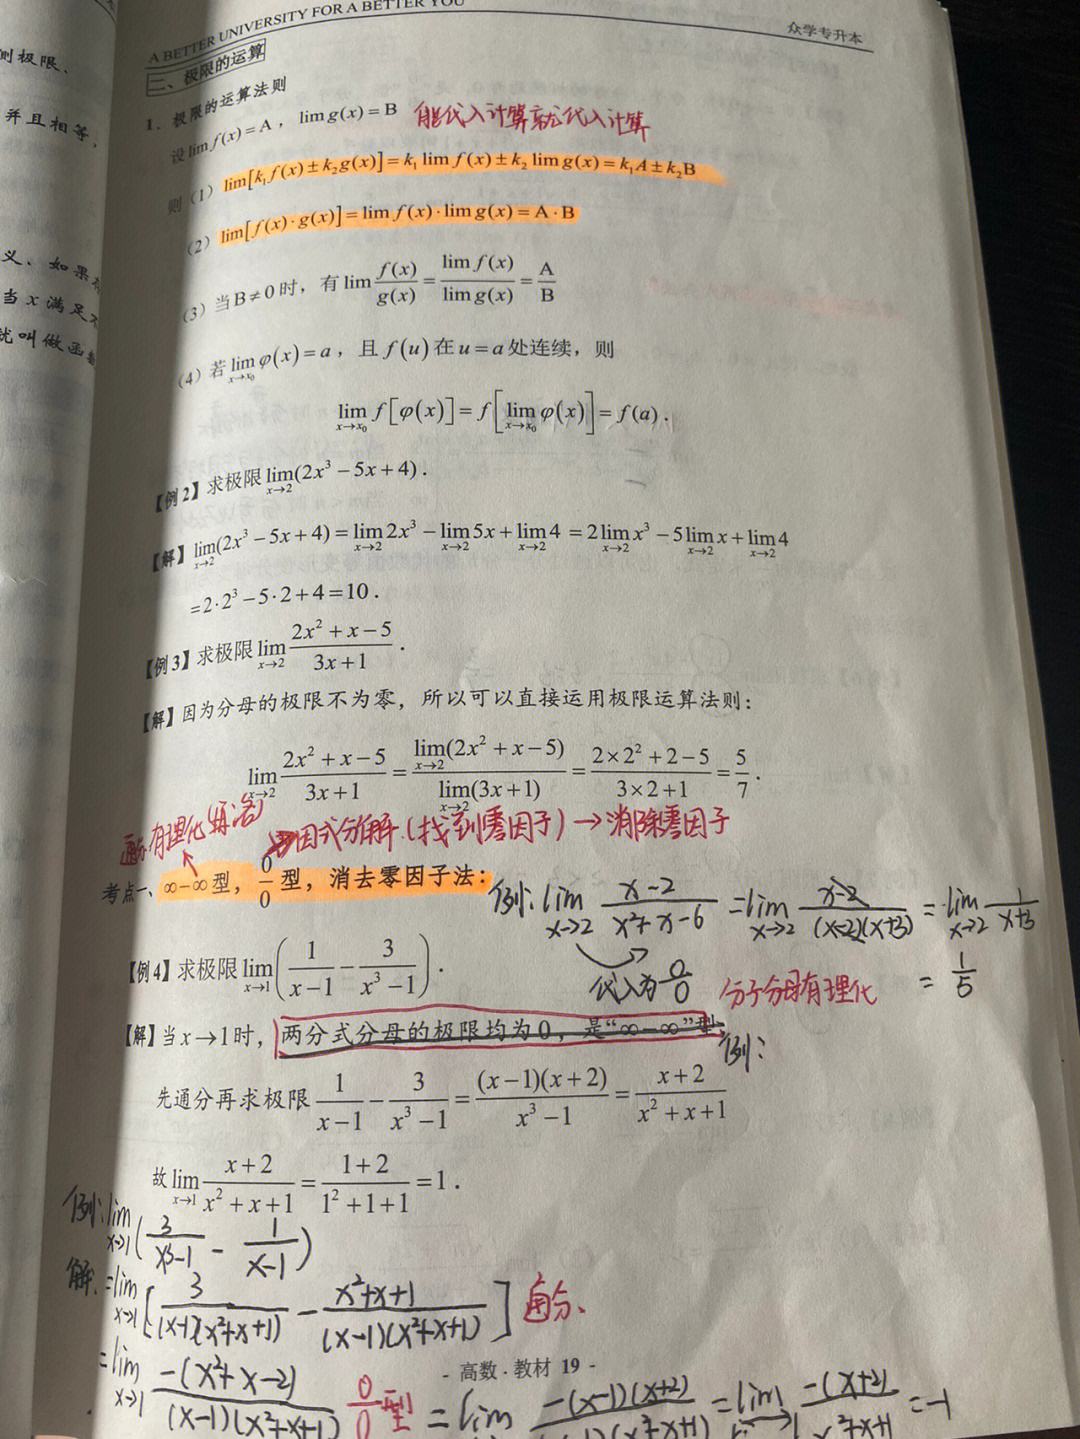 A BETTER UNIVERSITY FOR A BETTER YOU
众学专升本
则极限、
并且相等，
义、如果
当 x 满足
就叫做函数
二、极限的运算
1. 极限的运算法则
设 lim f(x) = A ， lim g(x) = B 能代入计算就代入计算
则（1）lim[k₁f(x) ± k₂g(x)] = k₁ lim f(x) ± k₂ lim g(x) = k₁A ± k₂B
（2）lim[f(x)·g(x)] = lim f(x)·lim g(x) = A·B
（3）当 B≠0 时，有 lim f(x)/g(x) = lim f(x)/lim g(x) = A/B
（4）若 lim_{x→x₀} φ(x) = a ，且 f(u) 在 u = a 处连续，则
lim_{x→x₀} f[φ(x)] = f[lim_{x→x₀} φ(x)] = f(a) .
【例 2】求极限 lim_{x→2}(2x³ − 5x + 4) .
【解】lim_{x→2}(2x³ − 5x + 4) = lim_{x→2} 2x³ − lim_{x→2} 5x + lim_{x→2} 4 = 2 lim_{x→2} x³ − 5 lim_{x→2} x + lim_{x→2} 4
= 2·2³ − 5·2 + 4 = 10 .
【例 3】求极限 lim_{x→2} (2x² + x − 5)/(3x + 1) .
【解】因为分母的极限不为零，所以可以直接运用极限运算法则：
lim_{x→2} (2x² + x − 5)/(3x + 1) = lim_{x→2}(2x² + x − 5)/lim_{x→2}(3x + 1) = (2×2² + 2 − 5)/(3×2 + 1) = 5/7 .
通分 有理化 因式分解（找到零因子）→ 消除零因子
考点一、∞−∞ 型，0/0 型，消去零因子法：
例: lim_{x→2} (x−2)/(x²+x−6) = lim_{x→2} (x−2)/((x−2)(x+3)) = lim_{x→2} 1/(x+3)
代入为 0/0
= 1/5
【例 4】求极限 lim_{x→1}(1/(x−1) − 3/(x³−1)) .
分子分母有理化
【解】当 x→1 时，两分式分母的极限均为 0，是“∞−∞”型
例：
先通分再求极限 1/(x−1) − 3/(x³−1) = (x−1)(x+2)/(x³−1) = (x+2)/(x²+x+1)
故 lim_{x→1} (x+2)/(x²+x+1) = (1+2)/(1²+1+1) = 1 .
例: lim_{x→1}(3/(x³−1) − 1/(x−1))
解: = lim_{x→1}[3/((x−1)(x²+x+1)) − (x²+x+1)/((x−1)(x²+x+1))] 通分、
- 高数·教材 19 -
= lim_{x→1} −(x²+x−2)/((x−1)(x²+x+1)) 0/0 型 = lim −(x−1)(x+2)/((x−1)(x²+x+1)) = lim_{x→1} −(x+2)/(x²+x+1) = −1